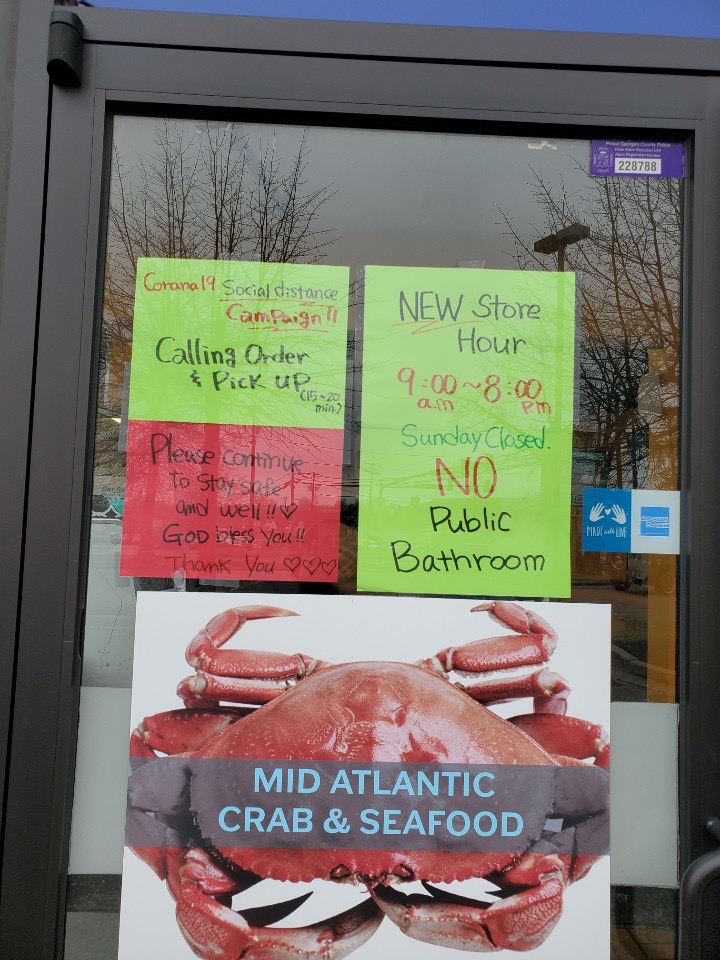 Prince George's County Police
False Alarm Reduction Unit
Alarm Registration Number
228788
Corana19 Social distance
Campaign!!
Calling Order
& Pick up
(15~20
min.)
Please continue
to stay safe
and well!!♡
GOD bless you!!
Thank You ♡♡♡
NEW Store
Hour
9:00~8:00
a.m pm
Sunday Closed.
NO
Public
Bathroom
MADE with LOVE
AMERICAN
EXPRESS
MID ATLANTIC
CRAB & SEAFOOD